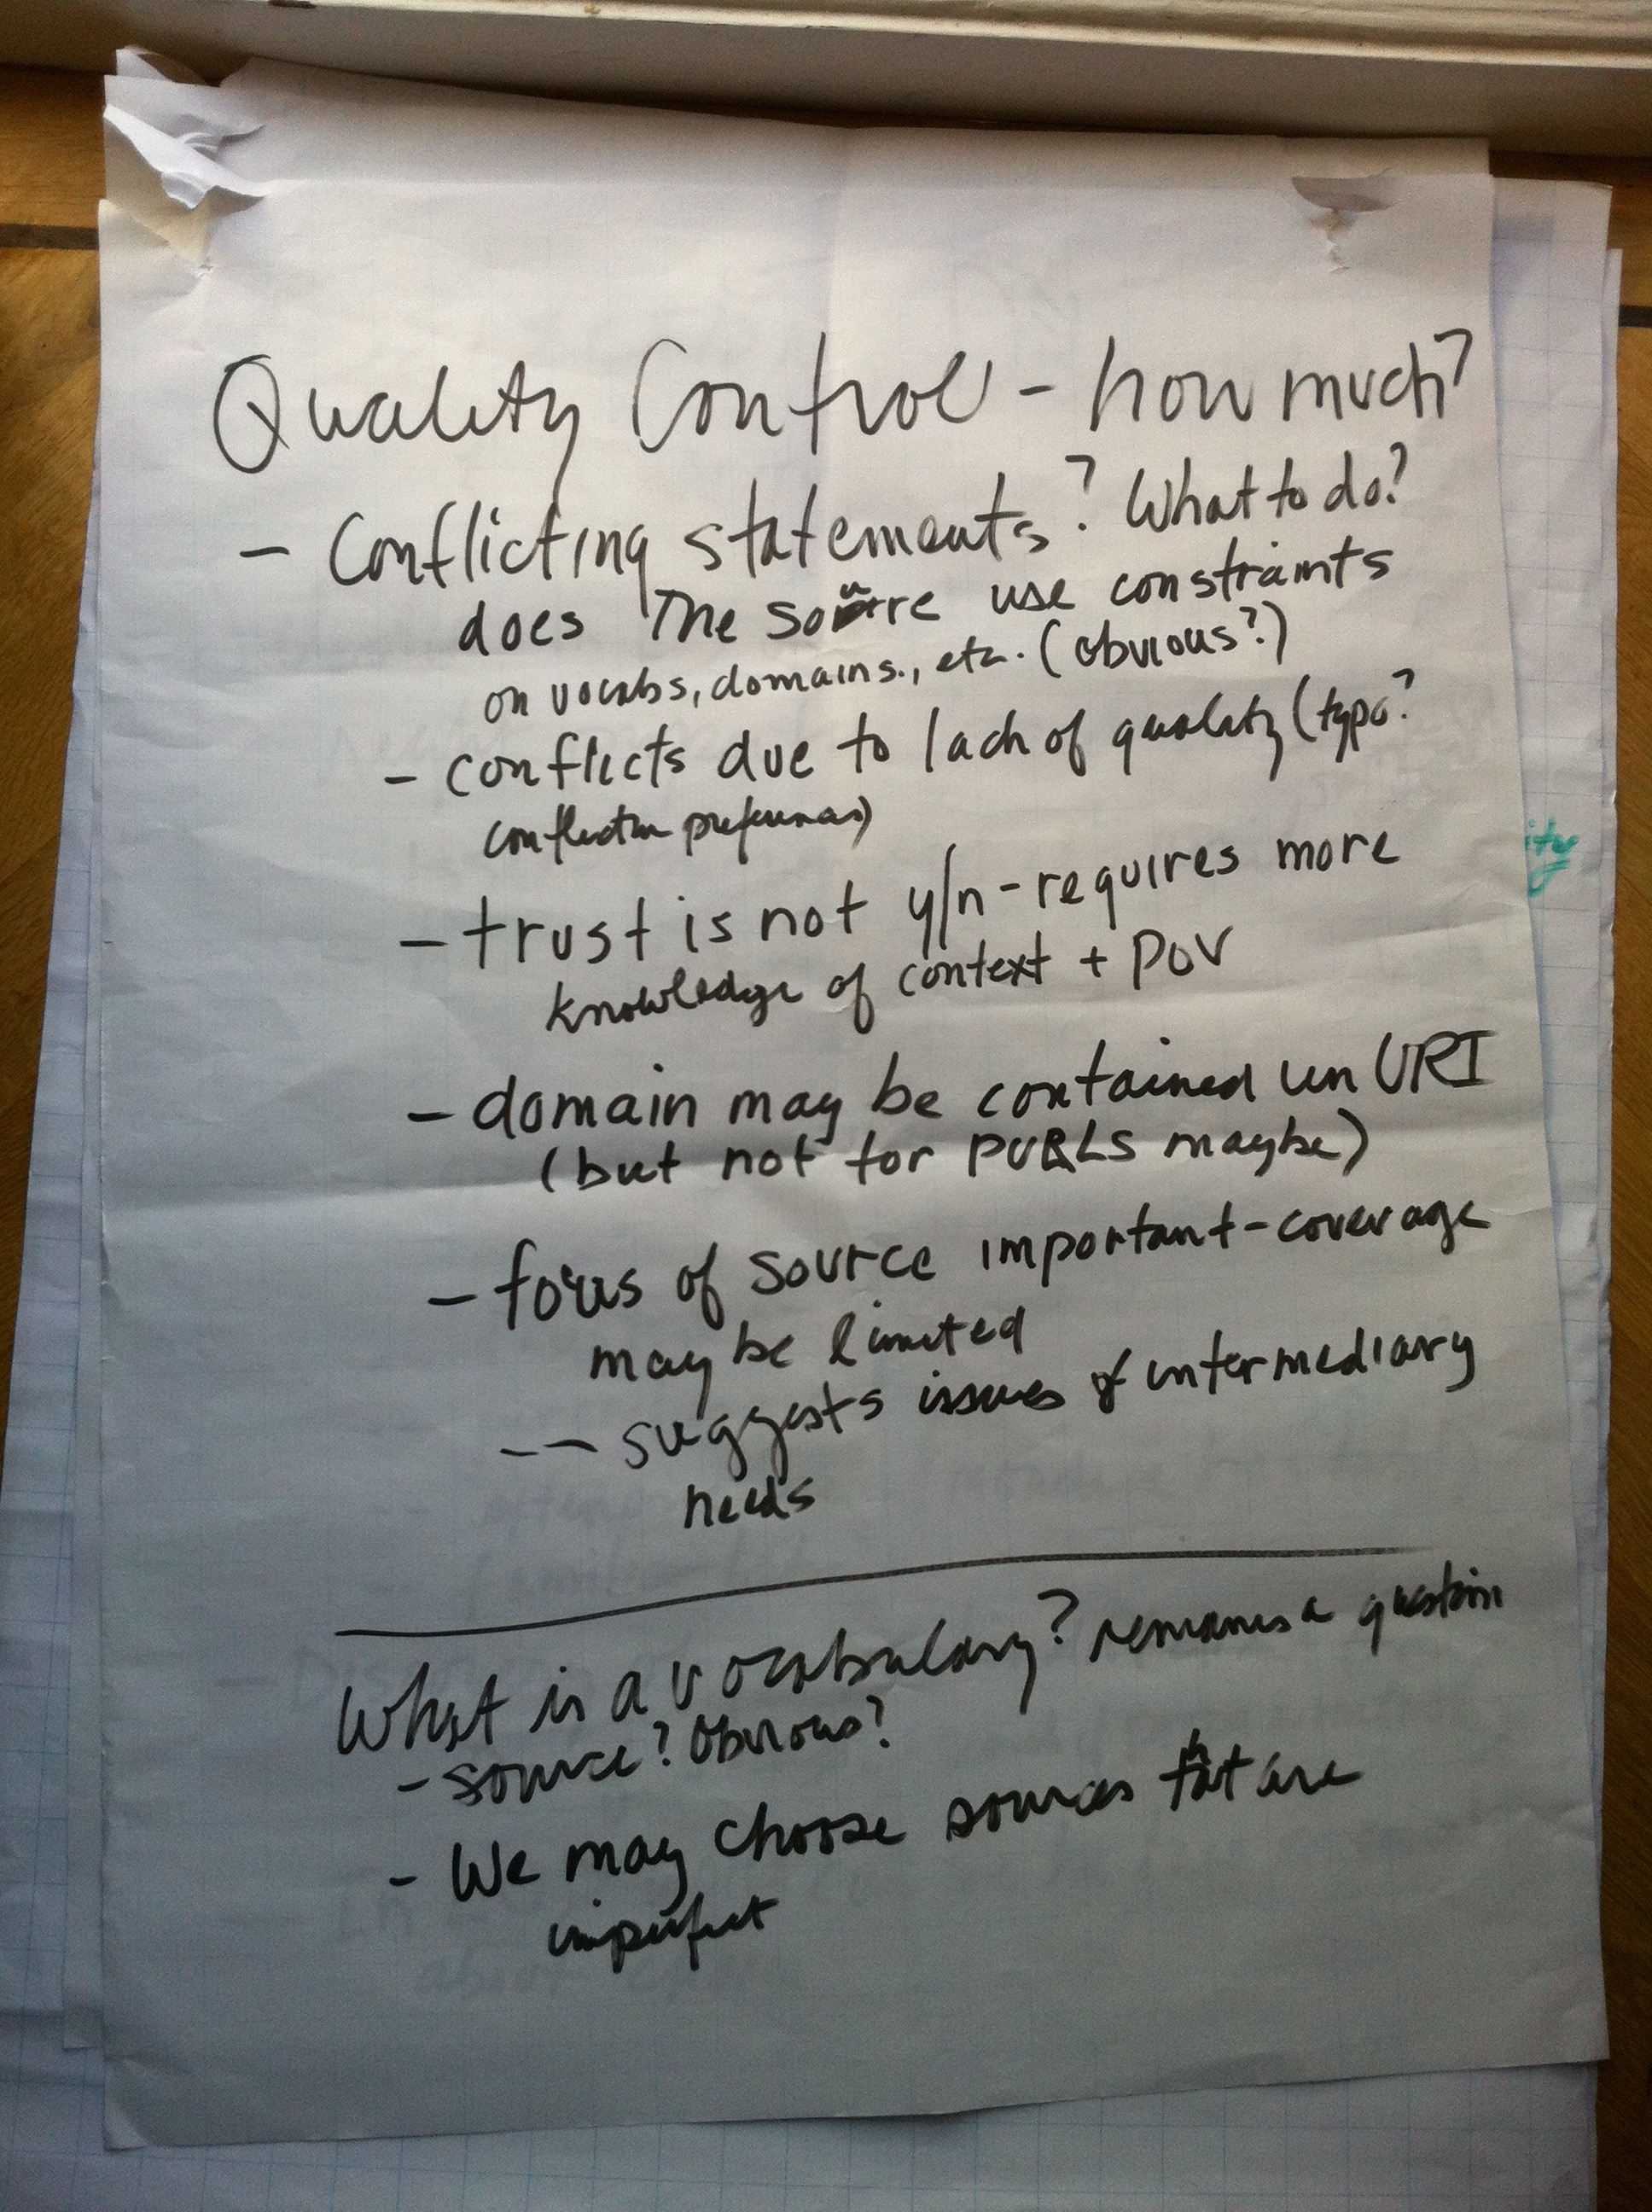 Quality Control - how much?
- Conflicting statements? What to do?
does The source use constraints
on vocabs, domains., etc. (obvious?)
- conflicts due to lack of quality (typo?
conflicting preferences)
- trust is not y/n - requires more
knowledge of context + POV
- domain may be contained in URI
(but not for PURLS maybe)
- focus of source important - coverage
may be limited
-- suggests issues of intermediary
needs
What is a vocabulary? remains a question
- source? Obvious?
- We may choose sources that are
imperfect
ity